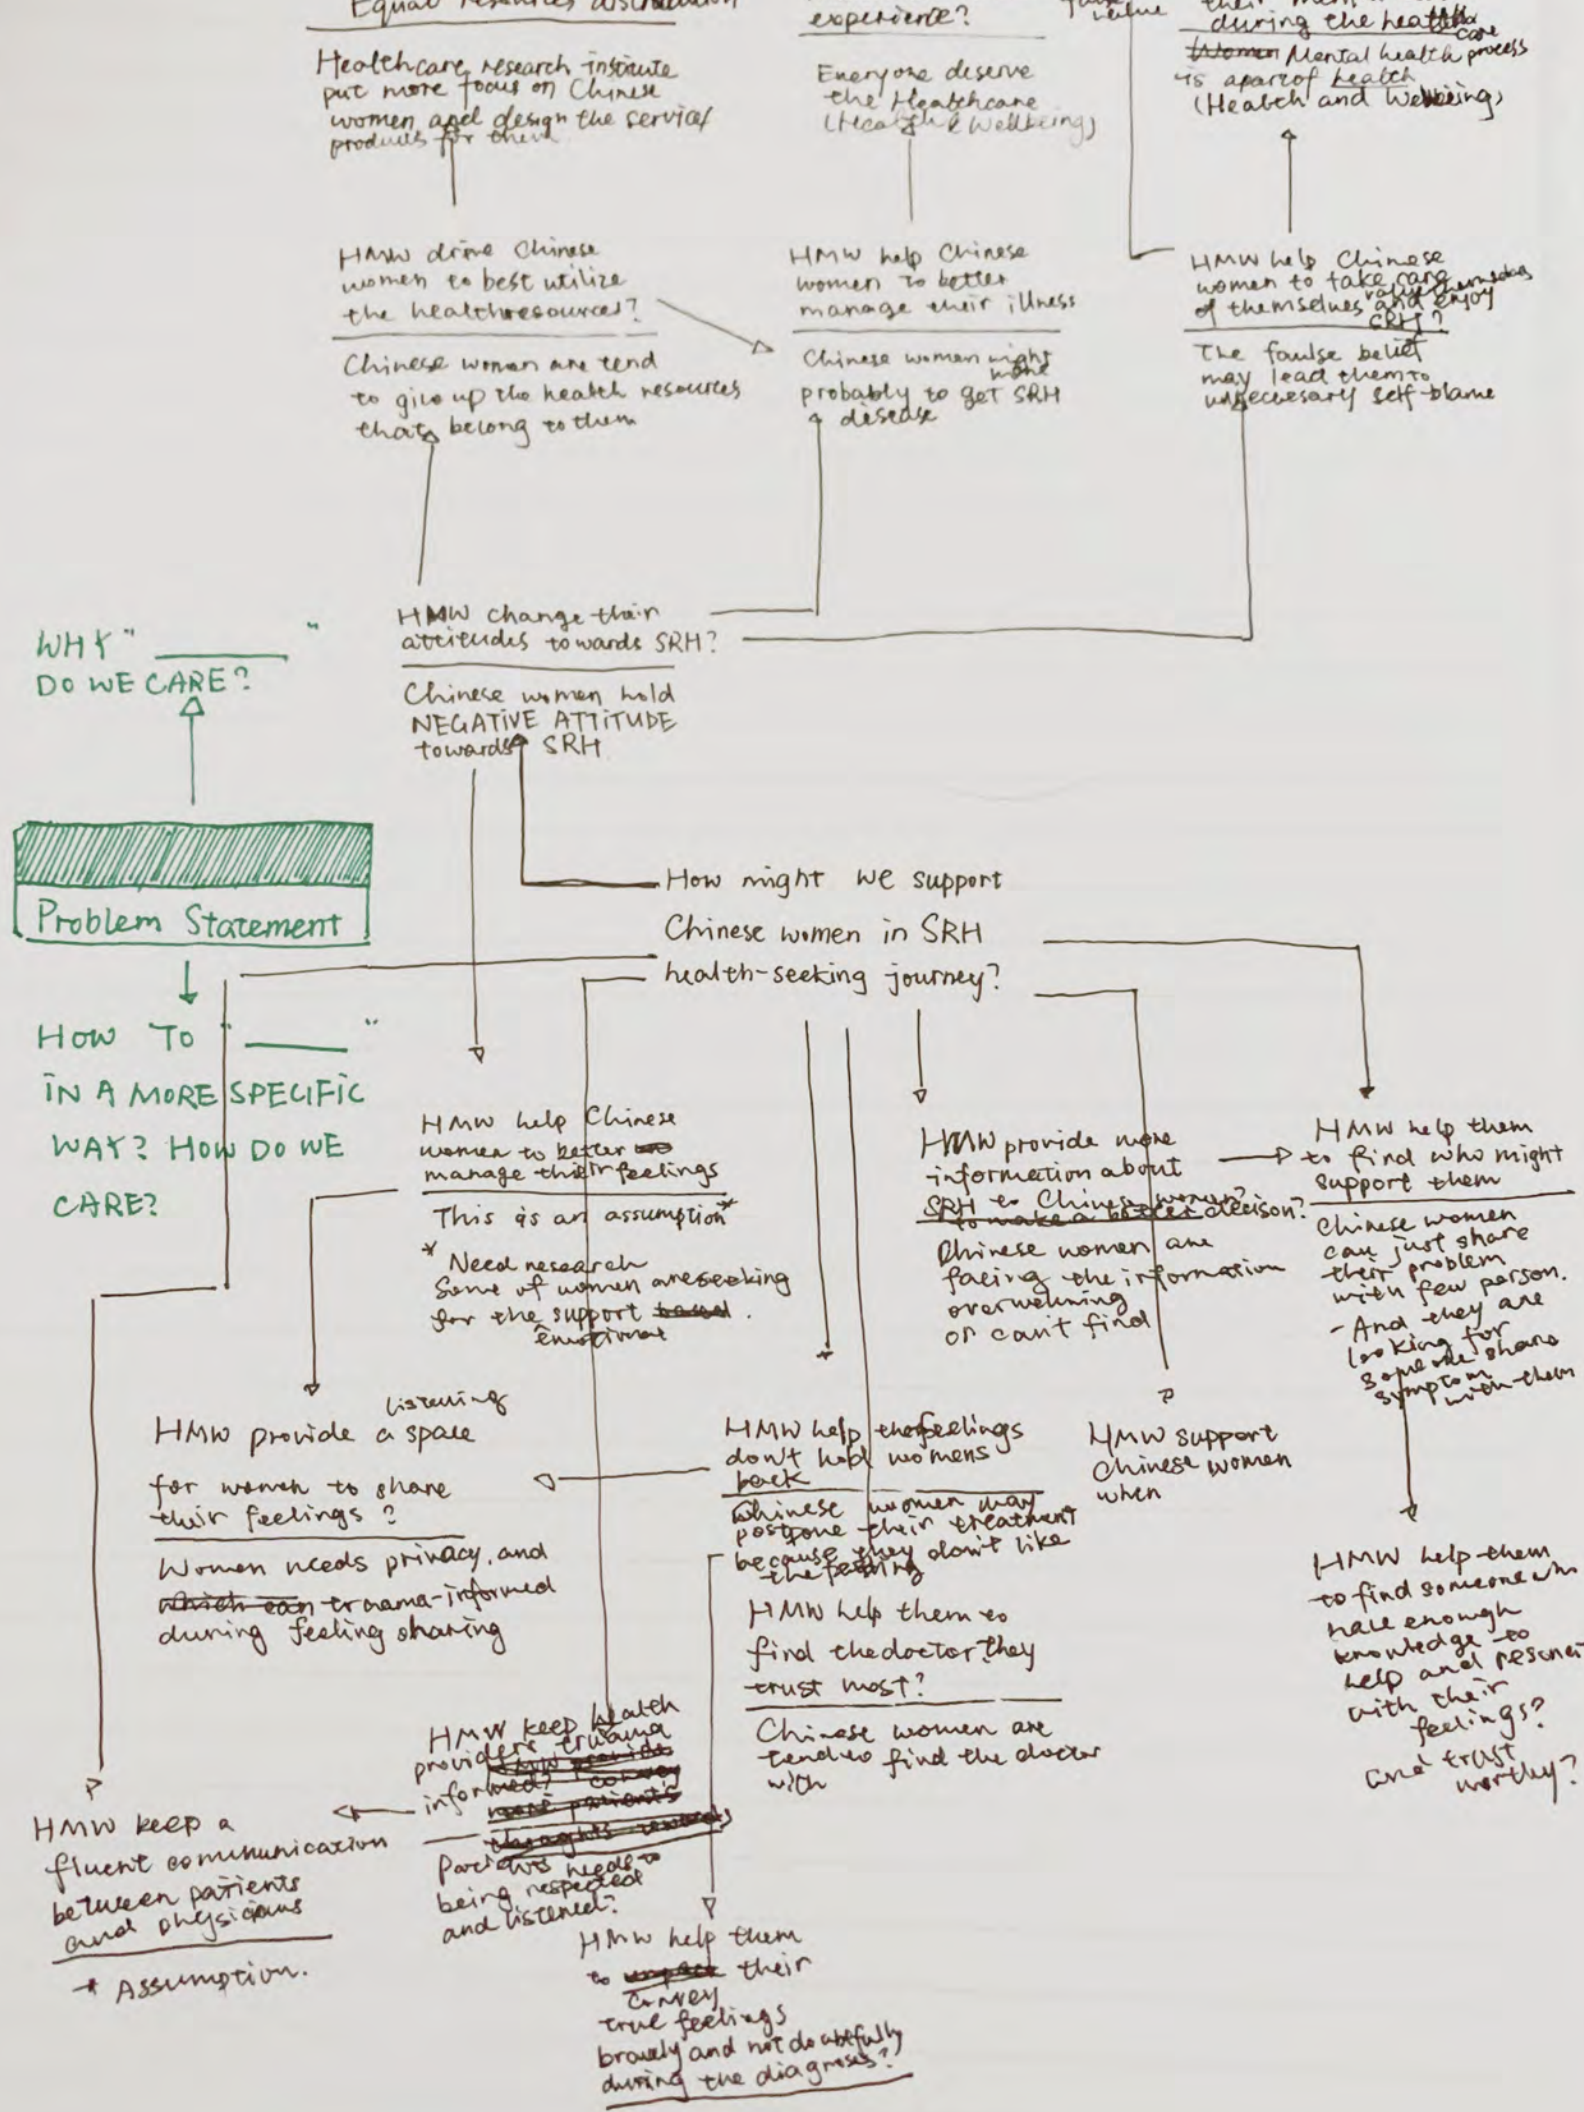 Equal resources distribution
Healthcare research institute
put more focus on Chinese
women and design the service/
products for them
experience?
Everyone deserve
the Healthcare
(Health & Wellbeing)
value
their
during the health
care
Women Mental health process
is a part of health
(Health and Wellbeing)
HMW drive Chinese
women to best utilize
the health resources?
Chinese women are tend
to give up the health resources
that belong to them
HMW help Chinese
women to better
manage their illness
Chinese women might
more
probably to get SRH
disease
HMW help Chinese
women to take care
of themselves and enjoy
value themselves
SRH?
The faulse belief
may lead them to
unneccesary self-blame
HMW change their
attitudes towards SRH?
Chinese women hold
NEGATIVE ATTITUDE
towards SRH
WHY "______"
DO WE CARE?
Problem Statement
HOW TO "______"
IN A MORE SPECIFIC
WAY? HOW DO WE
CARE?
How might we support
Chinese women in SRH
health-seeking journey?
HMW help Chinese
women to better
manage their feelings
This is an assumption*
* Need research
Some of women are seeking
for the support based.
emotional
HMW provide more
information about
SRH to Chinese women?
to make a better decison?
Chinese women are
facing the information
overwhelming
or can't find
HMW help them
to find who might
support them
Chinese women
can just share
their problem
with few person.
- And they are
looking for
someone share
symptom
with them
listening
HMW provide a space
for women to share
their feelings?
Women needs privacy, and
which can trauma-informed
during feeling sharing
HMW help the feelings
don't hold womens
back
Chinese women may
postpone their treatment
because they don't like
the feeling
HMW help them to
find the doctor they
trust most?
Chinese women are
tend to find the doctor
with
HMW support
Chinese women
when
HMW help them
to find someone who
have enough
knowledge to
help and resonate
with their
feelings?
and trust
worthy?
HMW keep health
providers trauma
informed?
HMW provide
convey
more patients
thoughts towards
Patients needs to
being respected
and listened?
HMW keep a
fluent communication
between patients
and physicians
* Assumption.
HMW help them
to unpack their
convey
true feelings
bravely and not doubtfully
during the diagnosis?